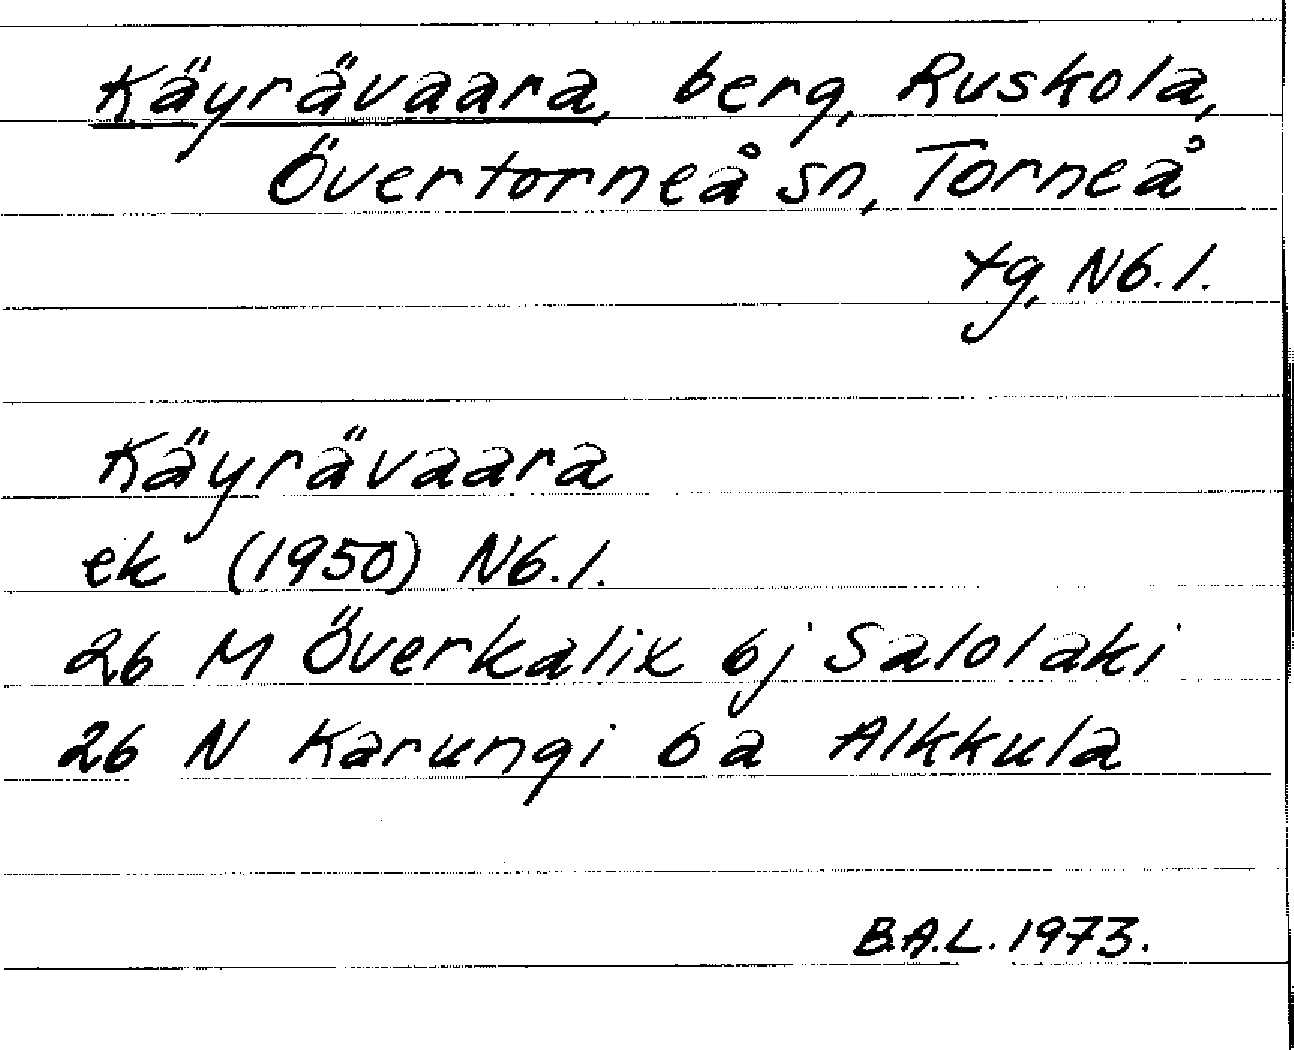 Käyrävaara, berg, Ruskola,
Övertorneå sn, Torneå
tg, Nb.l.
Käyrävaara
ek (1950) Nb.l.
26 M Överkalix 6j Salolaki
26 N Karungi 6a Alkkula
B.A.L. 1973.